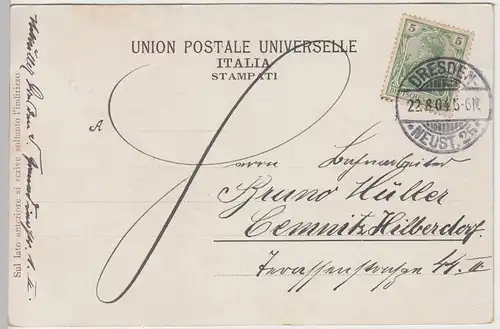 UNION POSTALE UNIVERSELLE
ITALIA
STAMPATI
5 5
DRESDEN-
22.8.04.5-6N.
*NEUST.
A
Herrn Bahnarbeiter
Bruno Müller
Cemnitz Hilberdorf
Terassenstrasse 44. II
Sul lato anteriore si scrive soltanto l'indirizzo